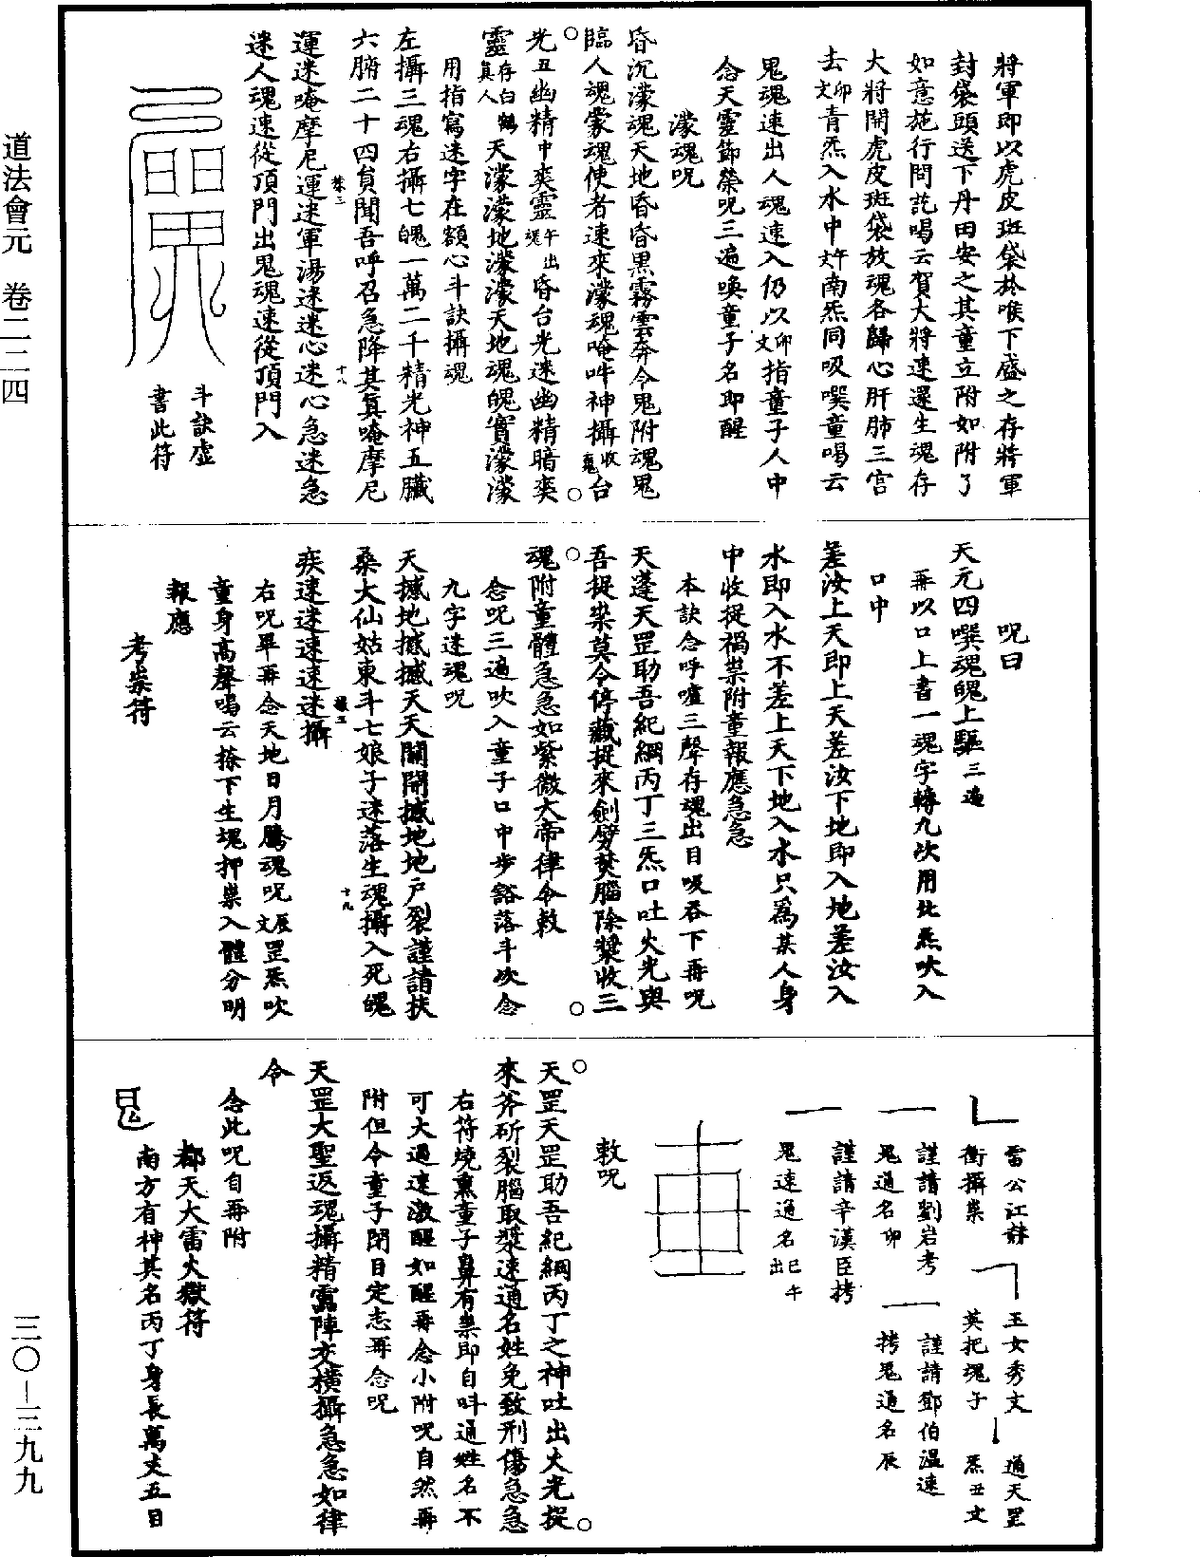 道法會元　卷二二四
三〇－三九九
將軍即以虎皮斑袋於喉下盛之存將軍
封袋頭送下丹田安之其童立附如附了
如意施行問訖喝云賀大將速還生魂存
大將開虎皮斑袋放魂各歸心肝肺三宮
去卯文青炁入水中午文南炁同吸噀童喝云
鬼魂速出人魂速入仍以卯文指童子人中
念天靈節榮呪三遍喚童子名即醒
濛魂呪
昏沉濛魂天地昏昏黑霧雲奔令鬼附魂鬼
臨人魂蒙魂使者速來濛魂唵吽神攝收鬼台
光丑幽精中爽靈午出魂昏台光迷幽精暗爽
靈存白鶴真人天濛濛地濛濛天地魂魄實濛濛
用指寫迷字在額心斗訣攝魂
左攝三魂右攝七魄一萬二千精光神五臟
六腑二十四員聞吾呼召急降其真唵摩尼
運迷唵摩尼運迷軍湯迷迷心迷心急迷急
迷人魂速從頂門出鬼魂速從頂門入
斗訣虛
書此符
呪曰
天元四噀魂魄上驅三遍
再以口上書一魂字轉九次用北炁吹入
口中
差汝上天即上天差汝下地即入地差汝入
水即入水不差上天下地入水只為某人身
中收捉禍祟附童報應急急
本訣念呼嚧三聲存魂出目吸吞下再呪
天蓬天罡助吾紀綱丙丁三炁口吐火光與
吾捉祟莫令停藏捉來劍劈焚腦除漿收三
魂附童體急急如紫微大帝律令敕
念呪三遍吹入童子口中步豁落斗次念
九字迷魂呪
天撼地撼撼天天關開撼地地戶裂謹請扶
桑大仙姑東斗七娘子迷落生魂攝入死魄
疾速迷速速迷攝
右呪畢再念天地日月騰魂呪辰文罡炁吹
童身高聲喝云捺下生塊押祟入體分明
報應
考祟符
雷公江赫
衝攝祟
玉女秀文
英把魂子
通天罡
炁丑文
謹請劉岩考
鬼通名卯
謹請鄧伯溫速
拷鬼通名辰
謹請辛漢臣拷
鬼速通名巳午出
敕呪
天罡天罡助吾紀綱丙丁之神吐出火光捉
來斧斫裂腦取漿速通名姓免致刑傷急急
右符燒熏童子鼻有祟即自呌通姓名不
可大過速激醒如醒再念小附呪自然再
附但令童子閉目定志再念呪
天罡大聖返魂攝精雷陣交橫攝急急如律
令
念此呪自再附
都天大雷火獄符
南方有神其名丙丁身長萬丈五日